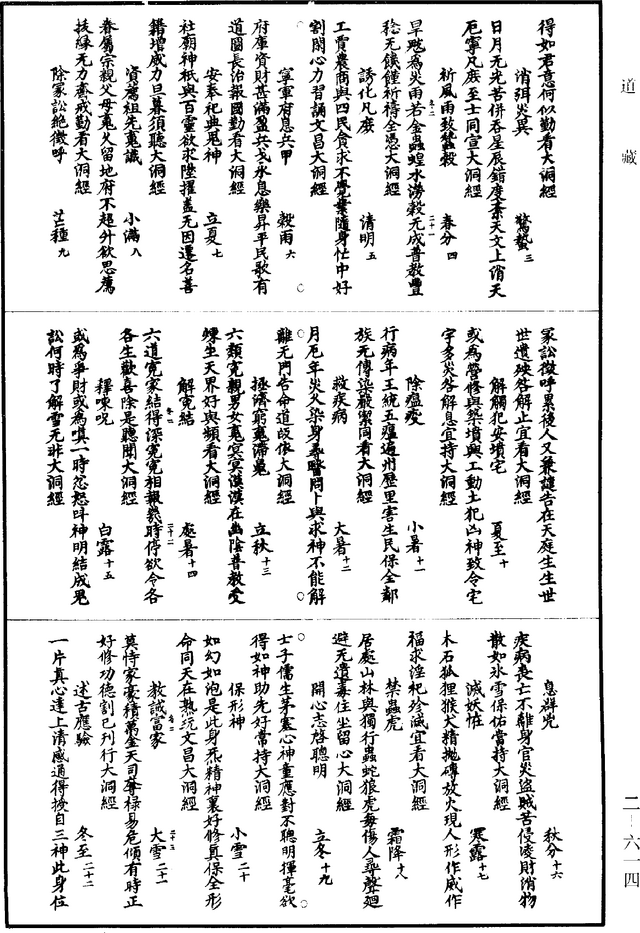 道藏
得如君意何似勤看大洞經
消弭災異
驚蟄三
日月无光苦併吞星辰錯度紊天文上俏天
厄寧凡庶至士同宣大洞經
祈風雨致蟄穀
春分四
旱魃為炎雨若金蟲蝗水澇穀无成普教豐
稔无饑饉祈禱全憑大洞經
誘化凡庶
清明五
工賈農商與四民貪求不覺業隨身忙中好
割閑心力習誦文昌大洞經
寧軍府息兵甲
穀雨六
府庫資財甚滿盈兵戈永息樂昇平民歌有
道國長治報國勤看大洞經
安奉祀典鬼神
立夏七
社廟神祇與百靈欲求陞擢蓋无因還名善
籍增威力旦暮須聽大洞經
資薦祖先鬼識
小滿八
眷屬宗親父母鬼久留地府不超升欲思薦
拔緣无力齋戒勤看大洞經
除冢訟絕徵呼
芒種九
冢訟徵呼累後人又兼謹告在天庭生生世
世遺殃咎解止宜看大洞經
解觸犯安墳宅
夏至十
或為營修與築墳興工動土犯凶神致令宅
宇多災咎解息宜持大洞經
除瘟疫
小暑十一
行病年王統五瘟遍州歷里害生民保全鄰
族无傳染嚴潔同看大洞經
救疾病
大暑十二
月厄年災火染身尋醫問卜與求神不能解
離无門告命道皈依大洞經
拯濟窮鬼滯魄
立秋十三
六類寃親男女鬼冥冥漠漠在幽陰普教受
鍊生天界好與頻看大洞經
解寃結
處暑十四
六道寃家結得深寃寃相報幾時停欲令各
各生歡喜除是聽聞大洞經
釋唊呪
白露十五
或為爭財或為嗔一時忿怒呌神明結成鬼
訟何時了解雪无非大洞經
息群兇
秋分十六
疾病喪亡不離身官災盜賊苦侵凌財消物
散如氷雪保佑當持大洞經
滅妖怪
寒露十七
木石狐狸猴犬精拋磚放火現人形作威作
福求淫祀殄滅宜看大洞經
禁蟲虎
霜降十八
居處山林與獨行蟲蛇狼虎每傷人尋聲迴
避无遺毒住坐留心大洞經
開心志啓聰明
立冬十九
士子儒生茅塞心神童應對不聰明揮毫欲
得如神助先好常持大洞經
保形神
小雪二十
如幻如泡是此身炁精神裏好修真保全形
命同天在熟玩文昌大洞經
教誡富家
大雪二十一
莫恃家豪積萬金天司奪祿易危傾有時正
好修功德割己刊行大洞經
述古應驗
冬至二十二
一片真心達上清感通得授自三神此身位
二－六一四